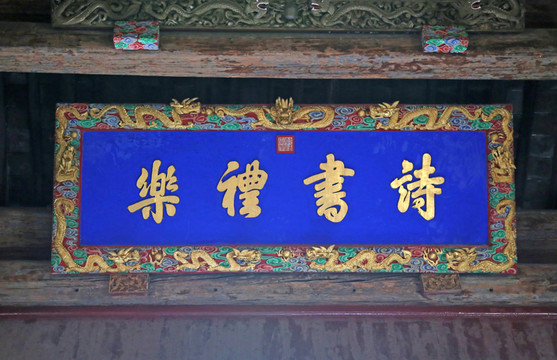 詩書禮樂